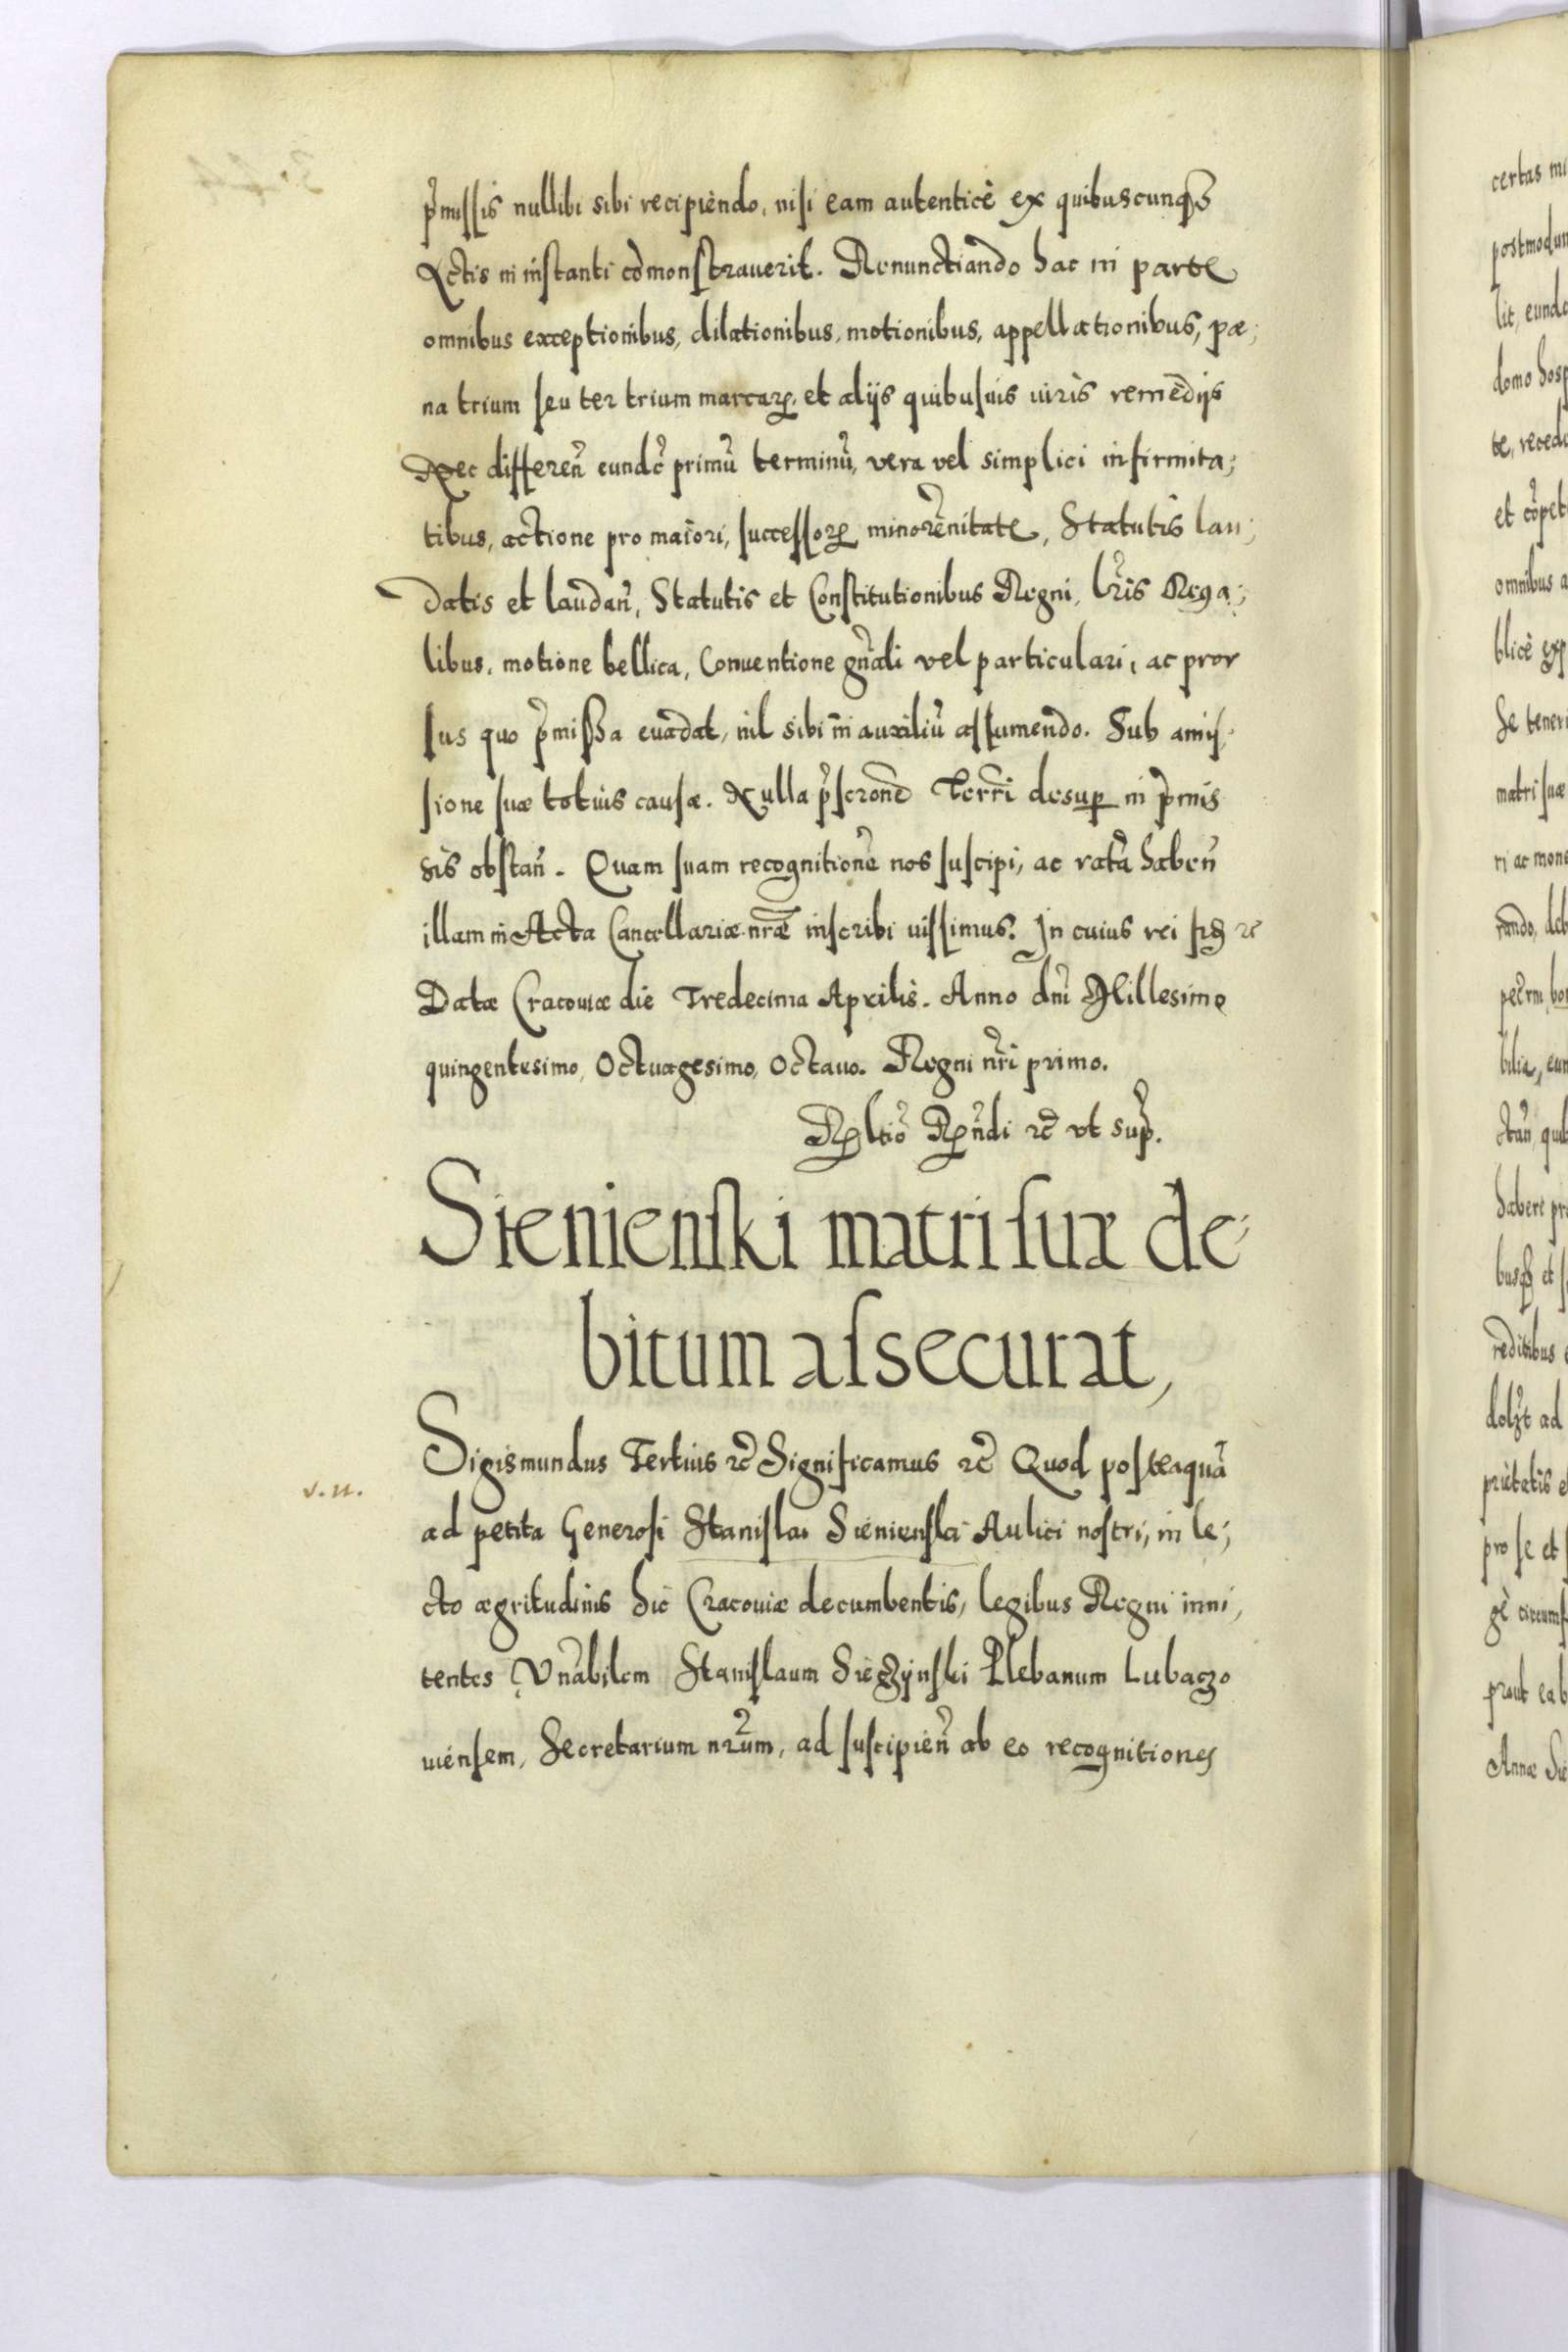 p̃missis nullibi sibi recipiendo, nisi eam autenticè ex quibuscunq₃
Actis in instanti edmonstrauerit. Renunctiando hac in parte
omnibus exceptionibus, dilationibus, motionibus, appellationibus, pæ;
na trium seu ter trium marcarꝝ, et alijs quibusuis iuris remedijs
Nec differeñ eundẽ primũ terminũ, vera vel simplici infirmita;
tibus, actione pro maiori, successorꝝ minorẽnitate, Statutis lau;
datis et laudañ, Statutis et Constitutionibus Regni, lr̃is Rega;
libus, motione bellica, Conuentione gñali vel particulari, ac pror
sus quo p̃missa euadat, nil sibi in auxiliũ assumendo. Sub amis;
sione suæ totius causæ. Nulla p̃scr̃one Terrĩ desuꝑ in p̃mis
sis obstañ. Quam suam recognitionẽ nos suscipi, ac ratã habeñ
illam in Acta Cancellariæ nr̃æ inscribi iussimus. In cuius rei
Datæ Cracouiæ die Tredecima Aprilis. Anno dñi Millesimo
quingentesimo, Octuagesimo, Octauo. Regni nr̃i primo.
Rltio Rñdi ꝛc̃ vt sup̃.
Sienienski matri suæ de;
bitum assecurat,
Sigismundus Tertius ꝛc̃ Significamus ꝛc̃ Quod posteaquã
ad petita Generosi Stanislai Sienienski Aulici nostri, in le;
cto ægritudinis hic Cracouiæ decumbentis, legibus Regni inni,
tentes Vñabilem Stanislaum Siegzÿnski Plebanum Lubaczo
uiensem, Secretarium nr̃um, ad suscipieñ ab eo recognitiones
v.n.
certas mi
postmodum
lit, eunde
domo hosp
te, recede
et cõpet
omnibus a
blicè exp
Se teneri
matri suæ
ri ac mone
rando, deb
bilia, eun
habere pr
reditibus
prietatis e
pro se et
gè circums
prout ea b
Annæ Sie